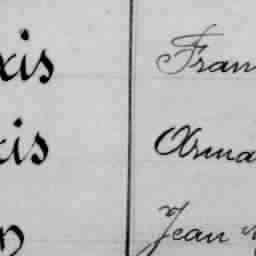 xis Fran
xis Arma
n Jean